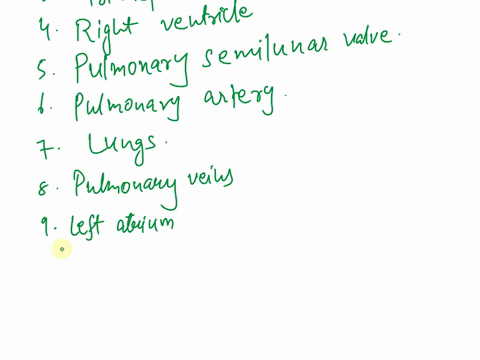 4. Right ventricle
5. Pulmonary semilunar valve.
6. Pulmonary artery.
7. Lungs.
8. Pulmonary veins
9. left atrium